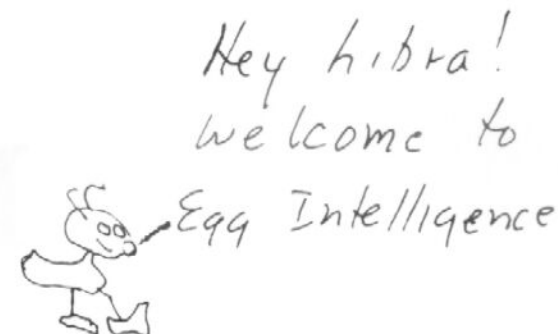 Hey Libra!
Welcome to
Egg Intelligence